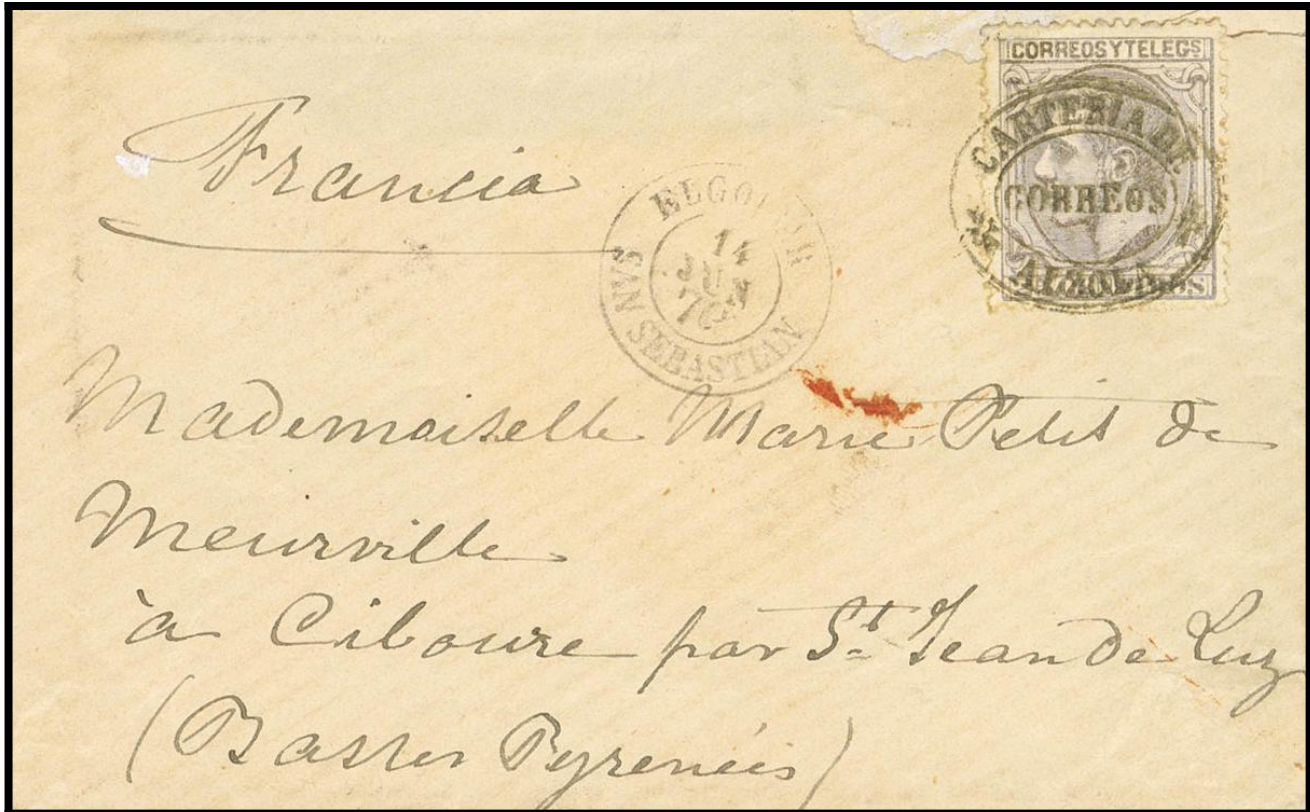 CORREOS Y TELEGS
CARTERIA DE
CORREOS
ALZOLA
Francia
14
SAN SEBASTIAN
Mademoiselle Marie Petit de
Meurville
à Ciboure par St Jean de Luz
(Basses Pyrenéés)